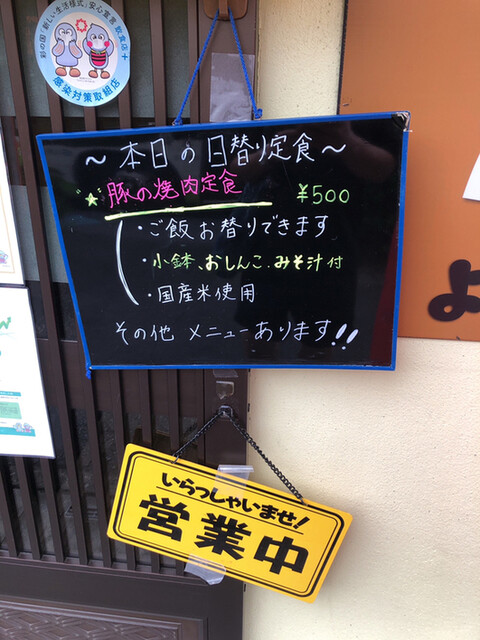 彩の国「新しい生活様式」安心宣言 飲食店+
感染対策取組店
～本日の日替り定食～
★豚の焼肉定食 ¥500
・ご飯お替りできます
・小鉢、おしんこ、みそ汁付
・国産米使用
その他 メニューあります!!
よ
いらっしゃいませ!
営業中